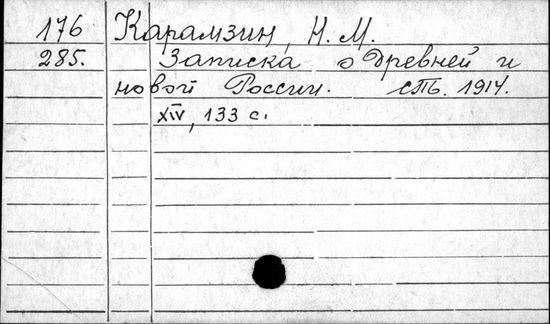 176 Карамзин, Н. М.
285. Записка о древней и
новой России. СПб. 1914.
XIV, 133 с.